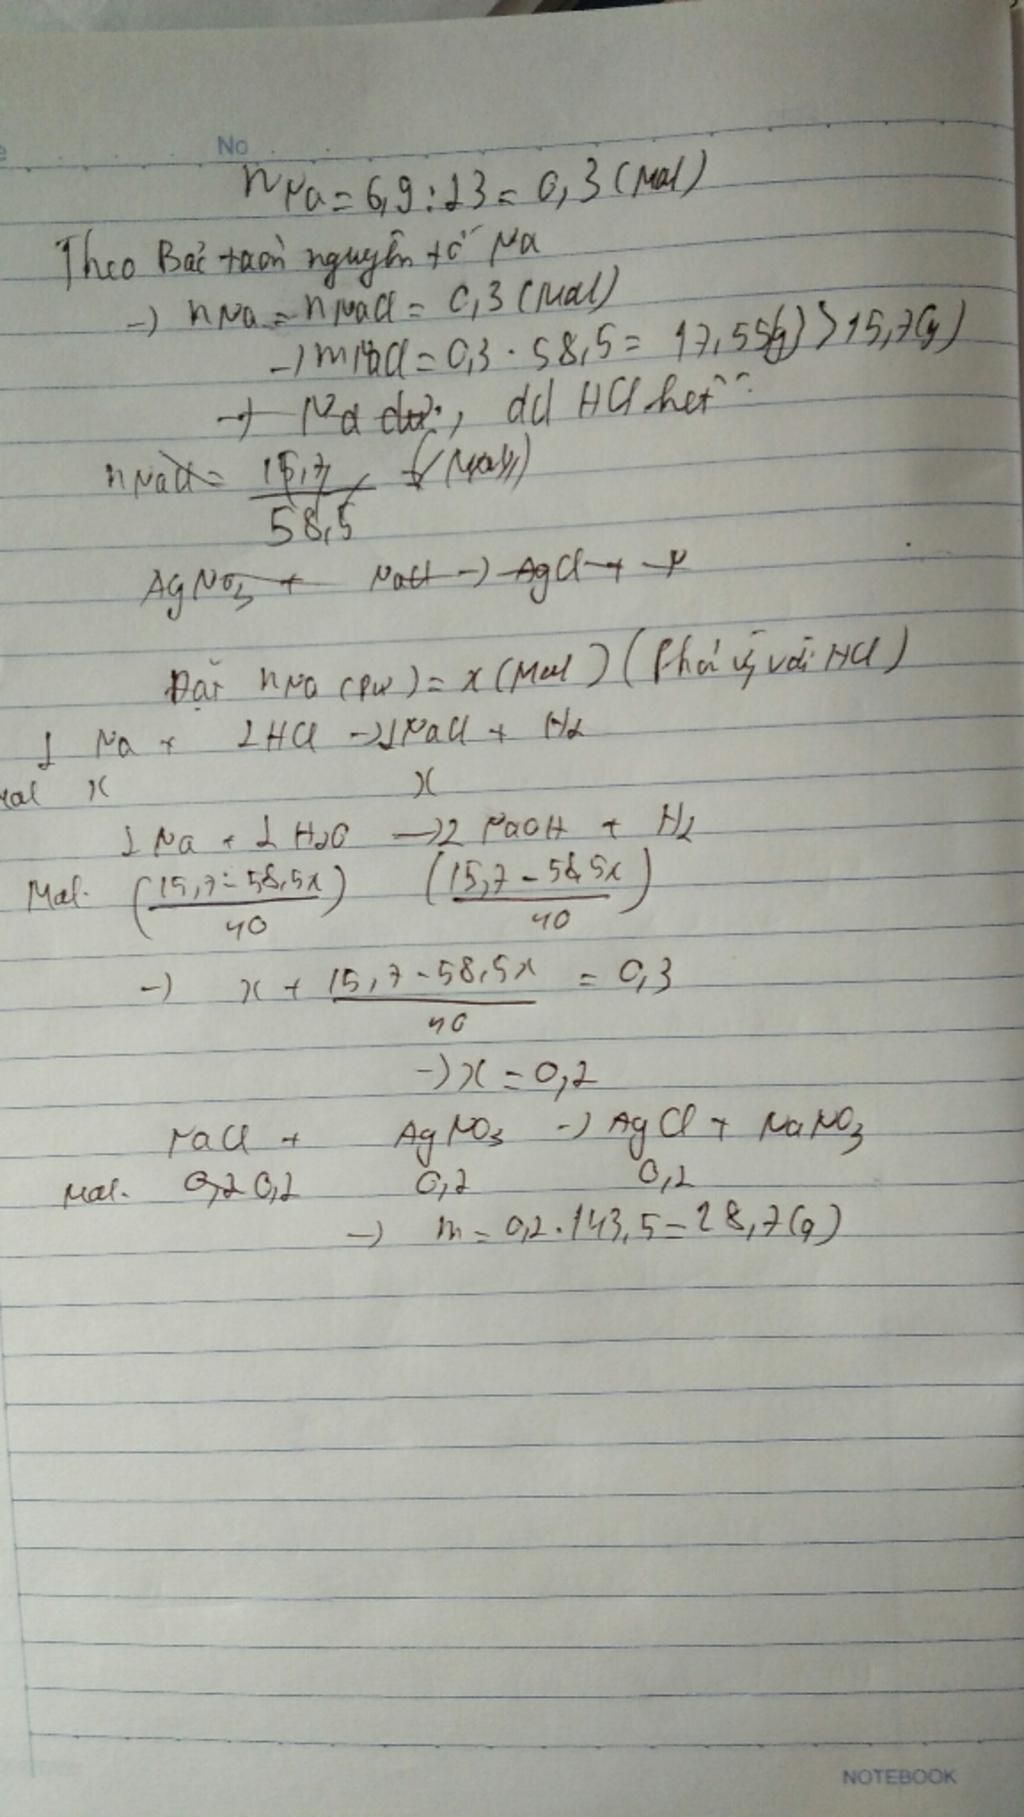 No
nNa = 6,9 : 23 = 0,3 (Mol)
Theo Bảo toàn nguyên tố Na
→ nNa = nNaCl = 0,3 (Mol)
→ mNaCl = 0,3 . 58,5 = 17,55(g) > 15,7(g)
→ Na dư, dd HCl hết
nNaCl = 15,7 / 58,5 (Mol)
AgNO3 + NaCl → AgCl +
Đặt nNa (pư) = x (Mol) (Phản ứ với HCl)
2 Na + 2HCl → 2NaCl + H2
Mol x x
2 Na + 2 H2O → 2 NaOH + H2
Mol. (15,7 - 58,5x / 40) (15,7 - 58,5x / 40)
→ x + 15,7 - 58,5x / 40 = 0,3
→ x = 0,2
NaCl + AgNO3 → AgCl + NaNO3
Mol. 0,2 0,2 0,2 0,2
→ m = 0,2 . 143,5 = 28,7(g)
NOTEBOOK